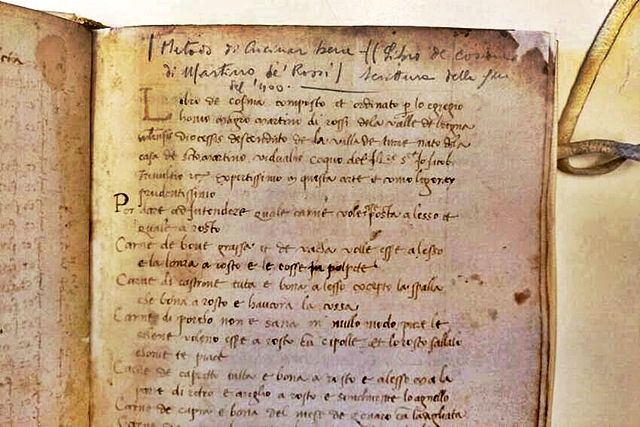 Metodo di Cucinar bene (Libro de cosina
di Martino de' Rossi) scrittura della fine
del '400.
Libro de cosina composto et ordinato p lo egregio
homo magro martino di rossi dela valle de
diocessis descendito de la villa de torre nato dela
casa de sco martino vidualis coquo del
Trivultio expertissimo in questa arte et como
prudentissimo
Per dare ad intendere quale carne vole posta a lesso et
quale a rosto
Carne de bove grassa et de vacha volle esse a lesso
e la lonza a rosto e le cosse in polpete
Carne di castrone tuta e bona a lesso excepto la spalla
che bona a rosto e hancora la cossa
Carne di porcho non e sana in nullo modo pure le
schene voleno esse a rosto cu cipolle et lo resto sallalo
chome te piace
Carne de capretto tutta e bona a rosto e alesso ma la
parte di retro e meglio a rosto e similmente lo agnello
Carne de capra e bona del mese de genaro cu la agliata